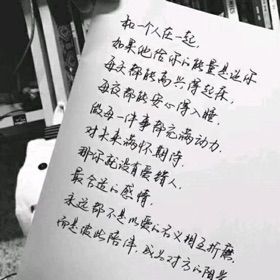 和一个人在一起，
如果他给你的能量是让你
每天都能高兴得起床，
每夜都能安心得入睡，
做每一件事都充满动力，
对未来满怀期待，
那你就没有爱错人。
最合适的感情，
永远都不是以爱的名义相互折磨，
而是彼此陪伴，成为对方的阳光